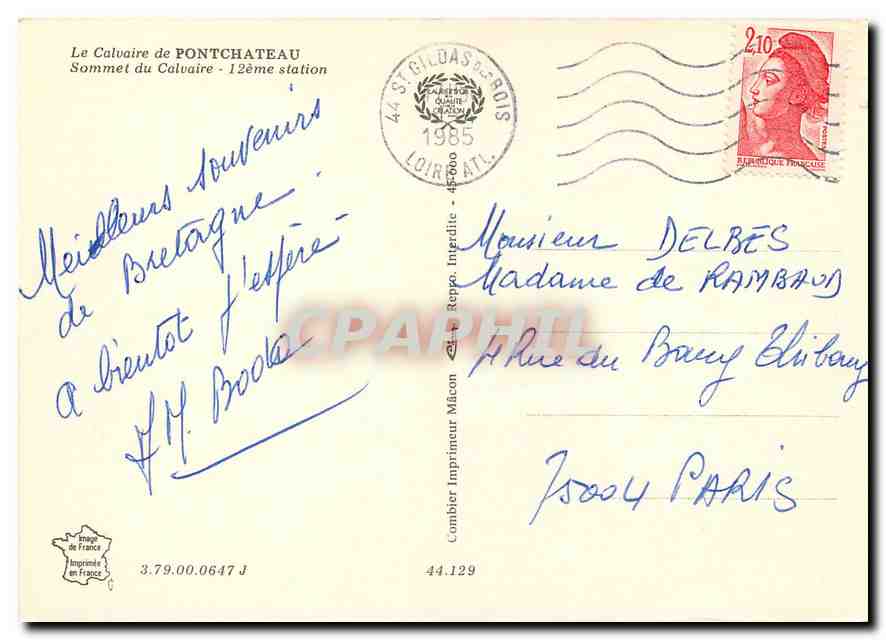 Le Calvaire de PONTCHATEAU
Sommet du Calvaire - 12ème station
44 ST GILDAS DES BOIS
QUALITE
CREATION
1985
LOIRE ATL.
2,10
POSTES
REPUBLIQUE FRANÇAISE
Meilleurs souvenirs
de Bretagne.
a bientot j'espère
Monsieur DELBES
Madame de RAMBAUD
4 Rue du Bourg Thibourg
75004 PARIS
CPAPHIL
Combier Imprimeur Mâcon
Repro. Interdite - 45-600
Image
de France
Imprimée
en France
3.79.00.0647 J
44.129